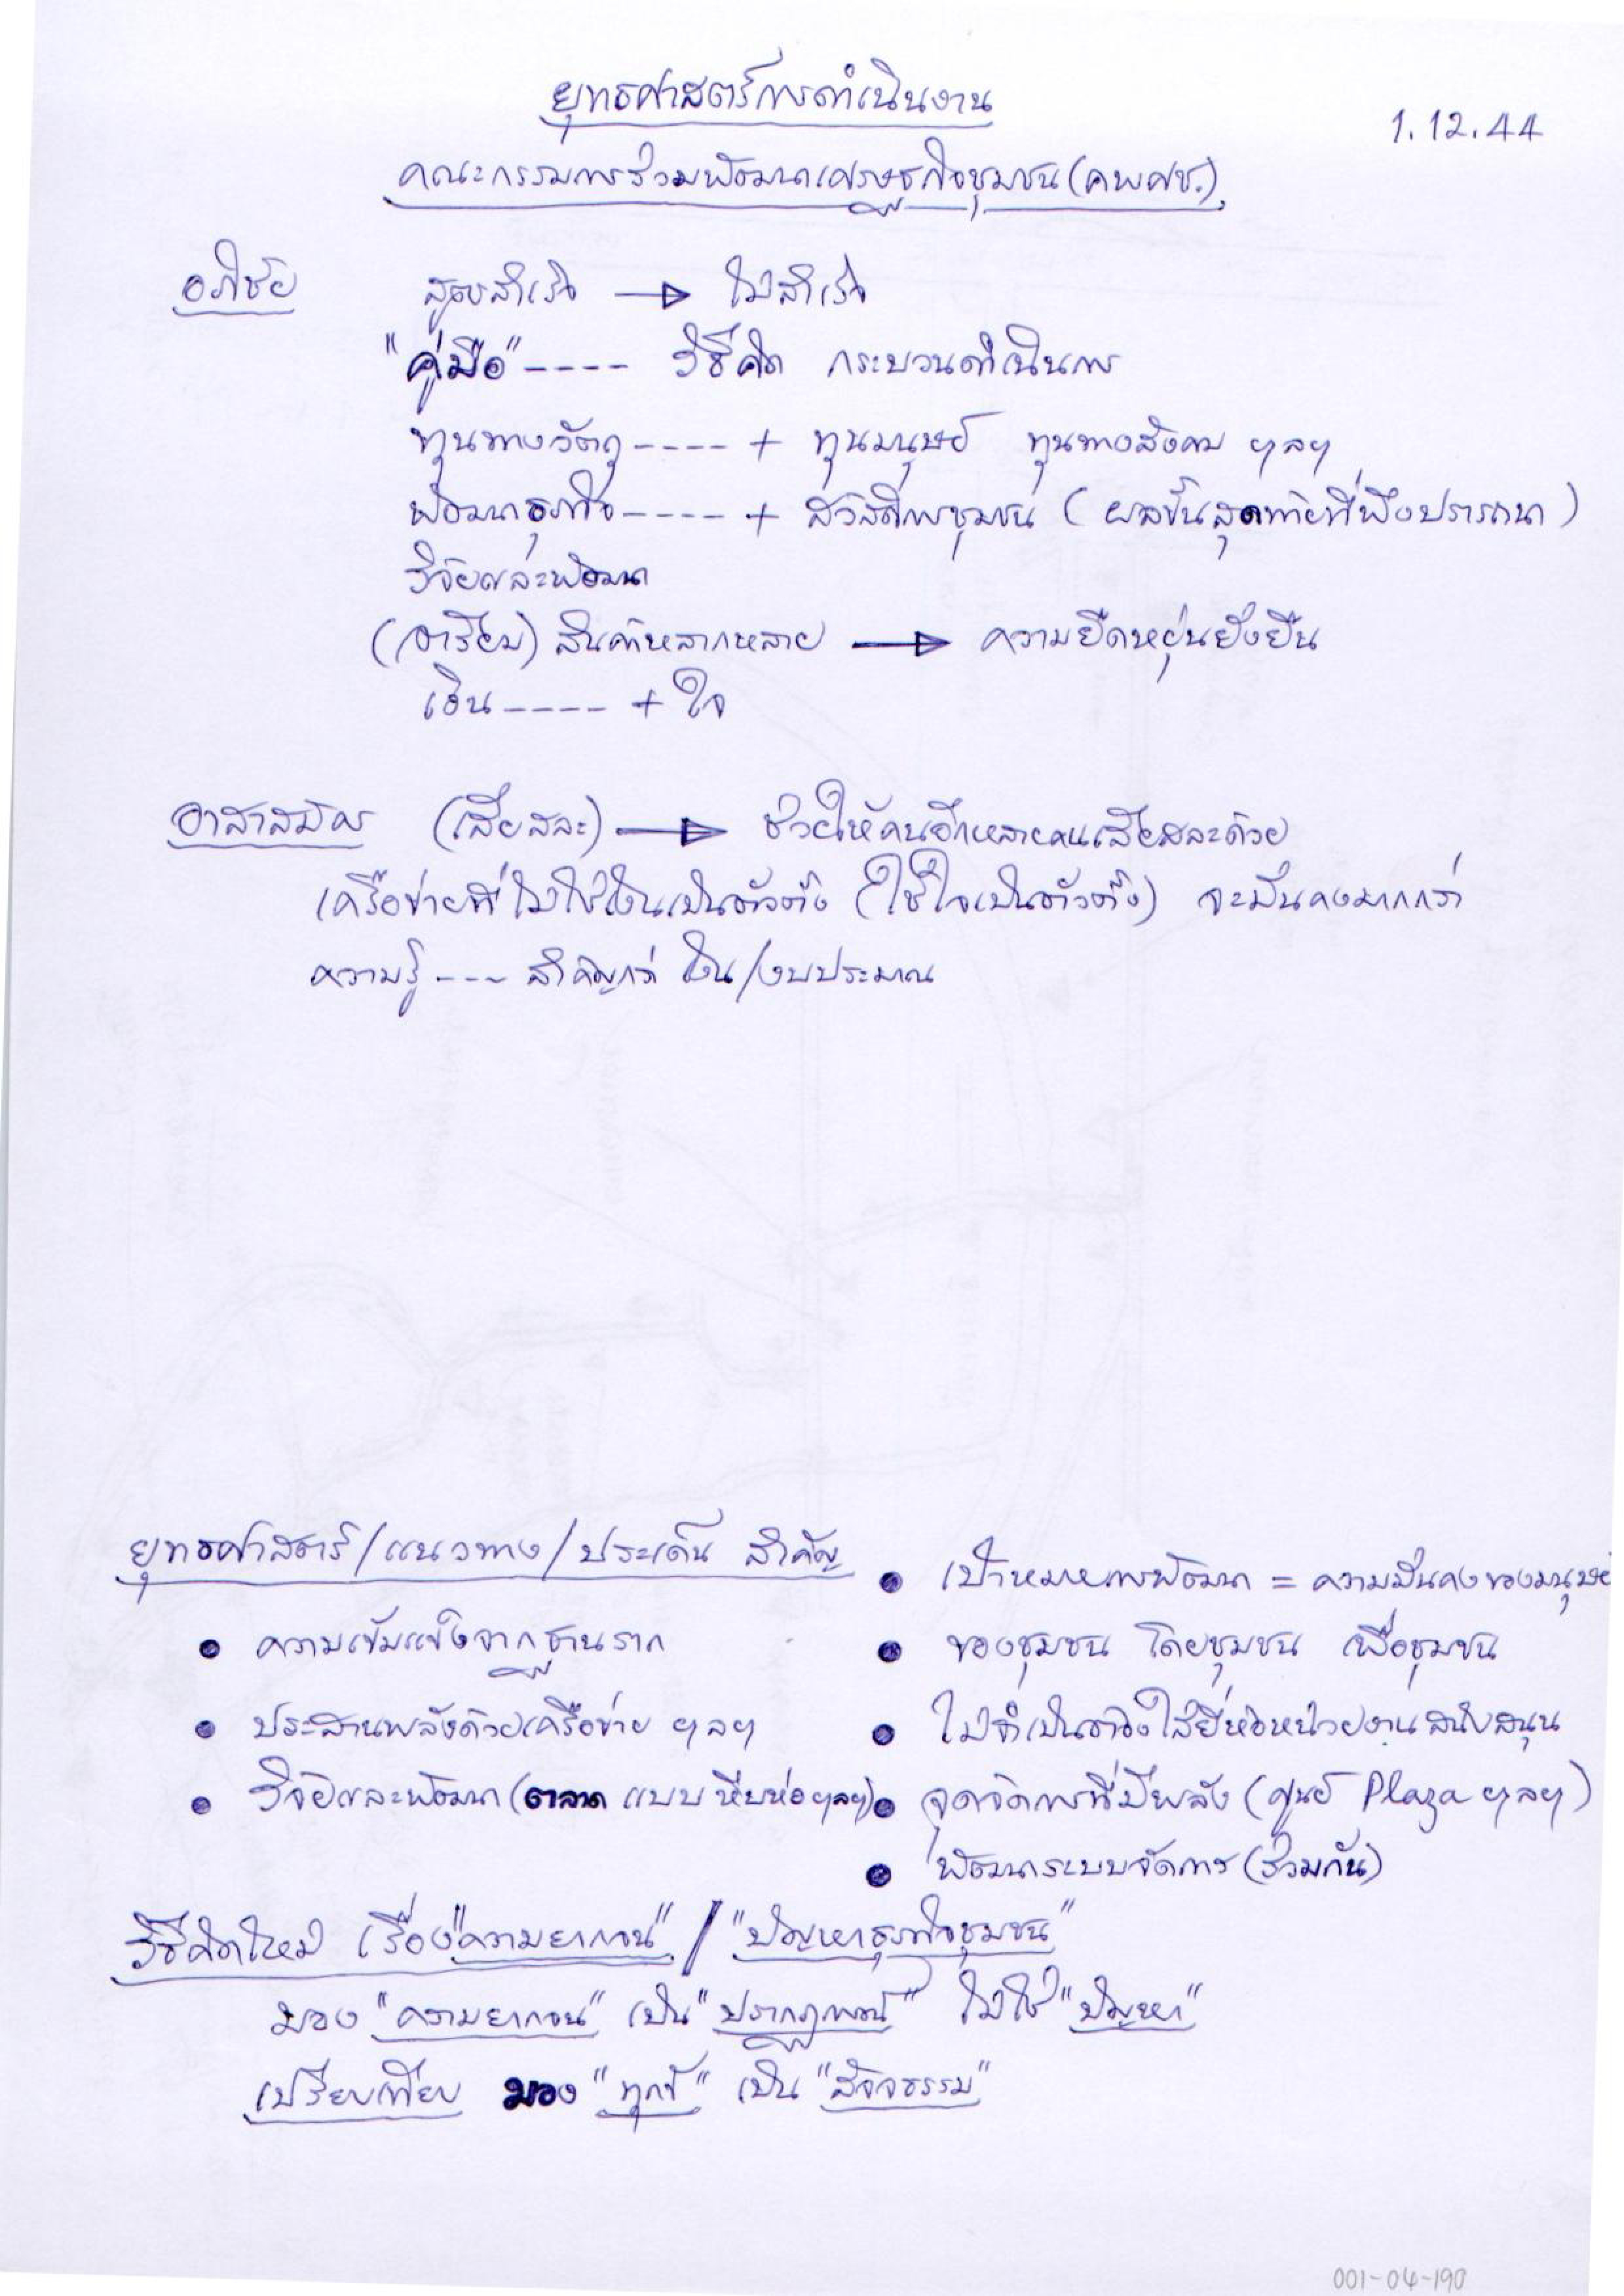 ยุทธศาสตร์การดำเนินงาน
1.12.44
คณะกรรมการร่วมพัฒนาเศรษฐกิจชุมชน (คพศช.)
อภิชัย สูตรสำเร็จ → ไม่สำเร็จ
"คู่มือ" ---- วิธีคิด กระบวนดำเนินการ
ทุนทางวัตถุ ---- + ทุนมนุษย์ ทุนทางสังคม ฯลฯ
พัฒนาธุรกิจ ---- + สวัสดิการชุมชน (ผลขั้นสุดท้ายที่พึงปรารถนา)
วิจัยและพัฒนา
(อาเรียม) สินค้าหลากหลาย → ความยืดหยุ่นยั่งยืน
เงิน ---- + ใจ
อาสาสมัคร (เสียสละ) → ช่วยให้คนอีกหลายคนเสียสละด้วย
เครือข่ายที่ไม่ใช้เงินเป็นตัวตั้ง (ใช้ใจเป็นตัวตั้ง) จะมั่นคงมากกว่า
ความรู้ --- สำคัญกว่า เงิน/งบประมาณ
ยุทธศาสตร์/แนวทาง/ประเด็น สำคัญ
• ความเข้มแข็งจากฐานราก
• ประสานพลังด้วยเครือข่าย ฯลฯ
• วิจัยและพัฒนา (ตลาด แบบ หีบห่อ ฯลฯ)
• เป้าหมายการพัฒนา = ความมั่นคงของมนุษย์
• ของชุมชน โดยชุมชน เพื่อชุมชน
• ไม่จำเป็นต้องใส่ยี่ห้อหน่วยงานสนับสนุน
• จุดจัดการที่มีพลัง (ศูนย์ Plaza ฯลฯ)
• พัฒนาระบบจัดการ (ร่วมกัน)
วิธีคิดใหม่ เรื่อง "ความยากจน" / "ปัญหาธุรกิจชุมชน"
มอง "ความยากจน" เป็น "ปรากฏการณ์" ไม่ใช่ "ปัญหา"
เปรียบเทียบ มอง "ทุกข์" เป็น "สัจธรรม"
001-04-190